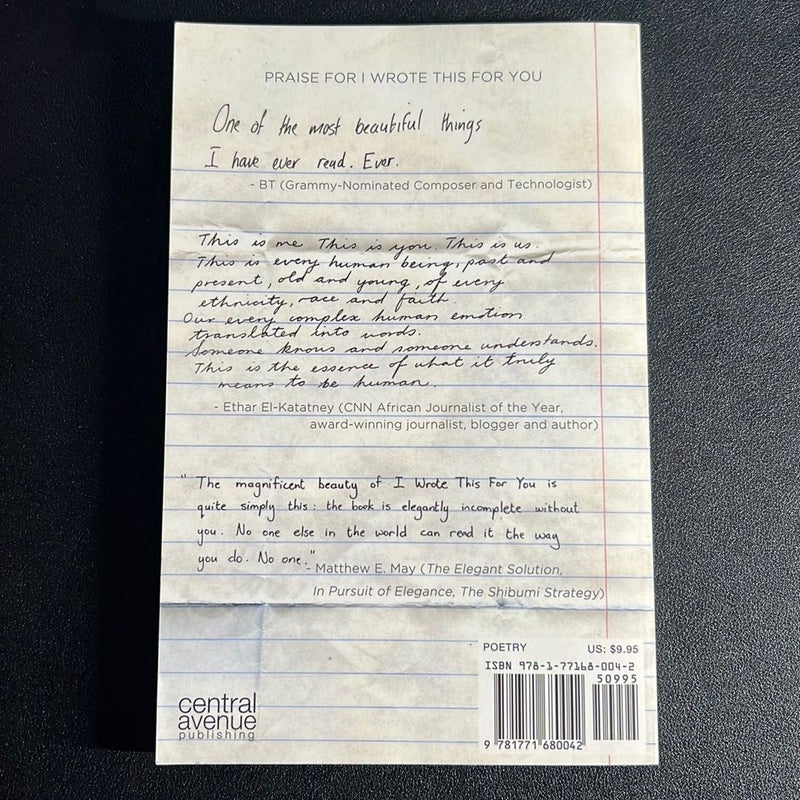 PRAISE FOR I WROTE THIS FOR YOU
One of the most beautiful things
I have ever read. Ever.
- BT (Grammy-Nominated Composer and Technologist)
This is me. This is you. This is us.
This is every human being, past and
present, old and young, of every
ethnicity, race and faith.
Our every complex human emotion
translated into words.
Someone knows and someone understands.
This is the essence of what it truly
means to be human.
- Ethar El-Katatney (CNN African Journalist of the Year,
award-winning journalist, blogger and author)
"The magnificent beauty of I Wrote This For You is
quite simply this: the book is elegantly incomplete without
you. No one else in the world can read it the way
you do. No one."
- Matthew E. May (The Elegant Solution,
In Pursuit of Elegance, The Shibumi Strategy)
POETRY US: $9.95
ISBN 978-1-77168-004-2
50995
9 781771 680042
central
avenue
publishing